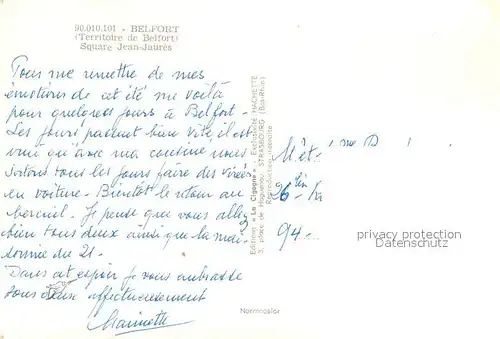 90.010.101 - BELFORT
(Territoire de Belfort)
Square Jean-Jaurès
Pour me remettre de mes
émotions de cet été me voilà
pour quelques jours à Belfort -
Les jours passent bien vite il est
vrai qu'avec ma cousine nous
sortons tous les jours faire des virées
en voiture - Bientôt le retour au
bercail. Je pense que vous allez
bien tous deux ainsi que la
du 21 -
Dans cet espoir je vous embrasse
tous deux affectueusement
Mariette
Editions « La Cigogne » - Exclusivité HACHETTE
3, place de Haguenau, STRASBOURG (Bas-Rhin)
Reproduction interdite
Normcolor
26
94 -
privacy protection
Datenschutz